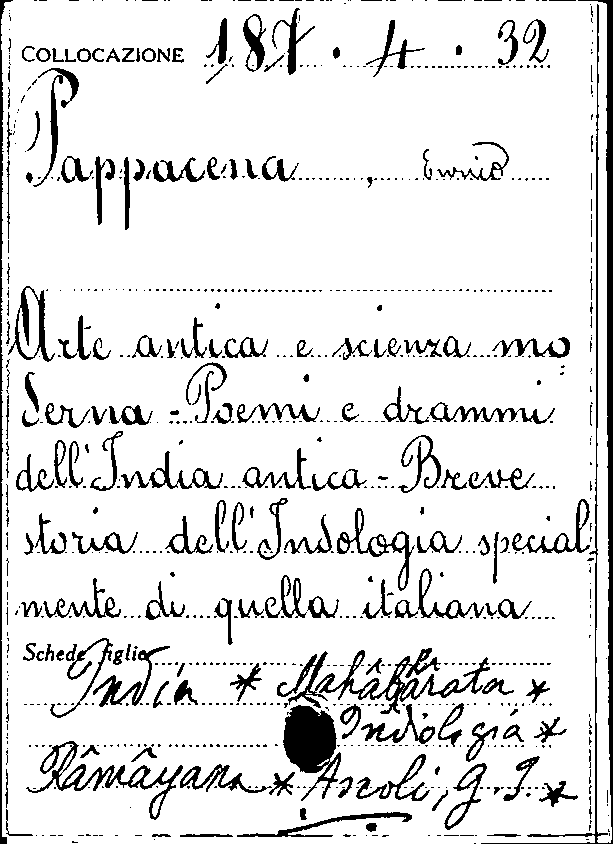 COLLOCAZIONE 187.4.32
Pappacena, Ennio
Arte antica e scienza mo
derna - Poemi e drammi
dell'India antica - Breve
storia dell'Indologia special
mente di quella italiana
Schede figlie
India * Mahâbhârata *
Indologia *
Râmâyana * Ascoli, G. I. *